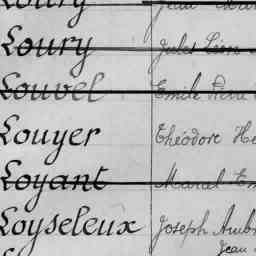 Loury Jean
Loury Jules Léon
Louvel Emile Pierre
Louyer Théodore He
Loyant Marcel Em
Loyseleux Joseph Amb
Jean